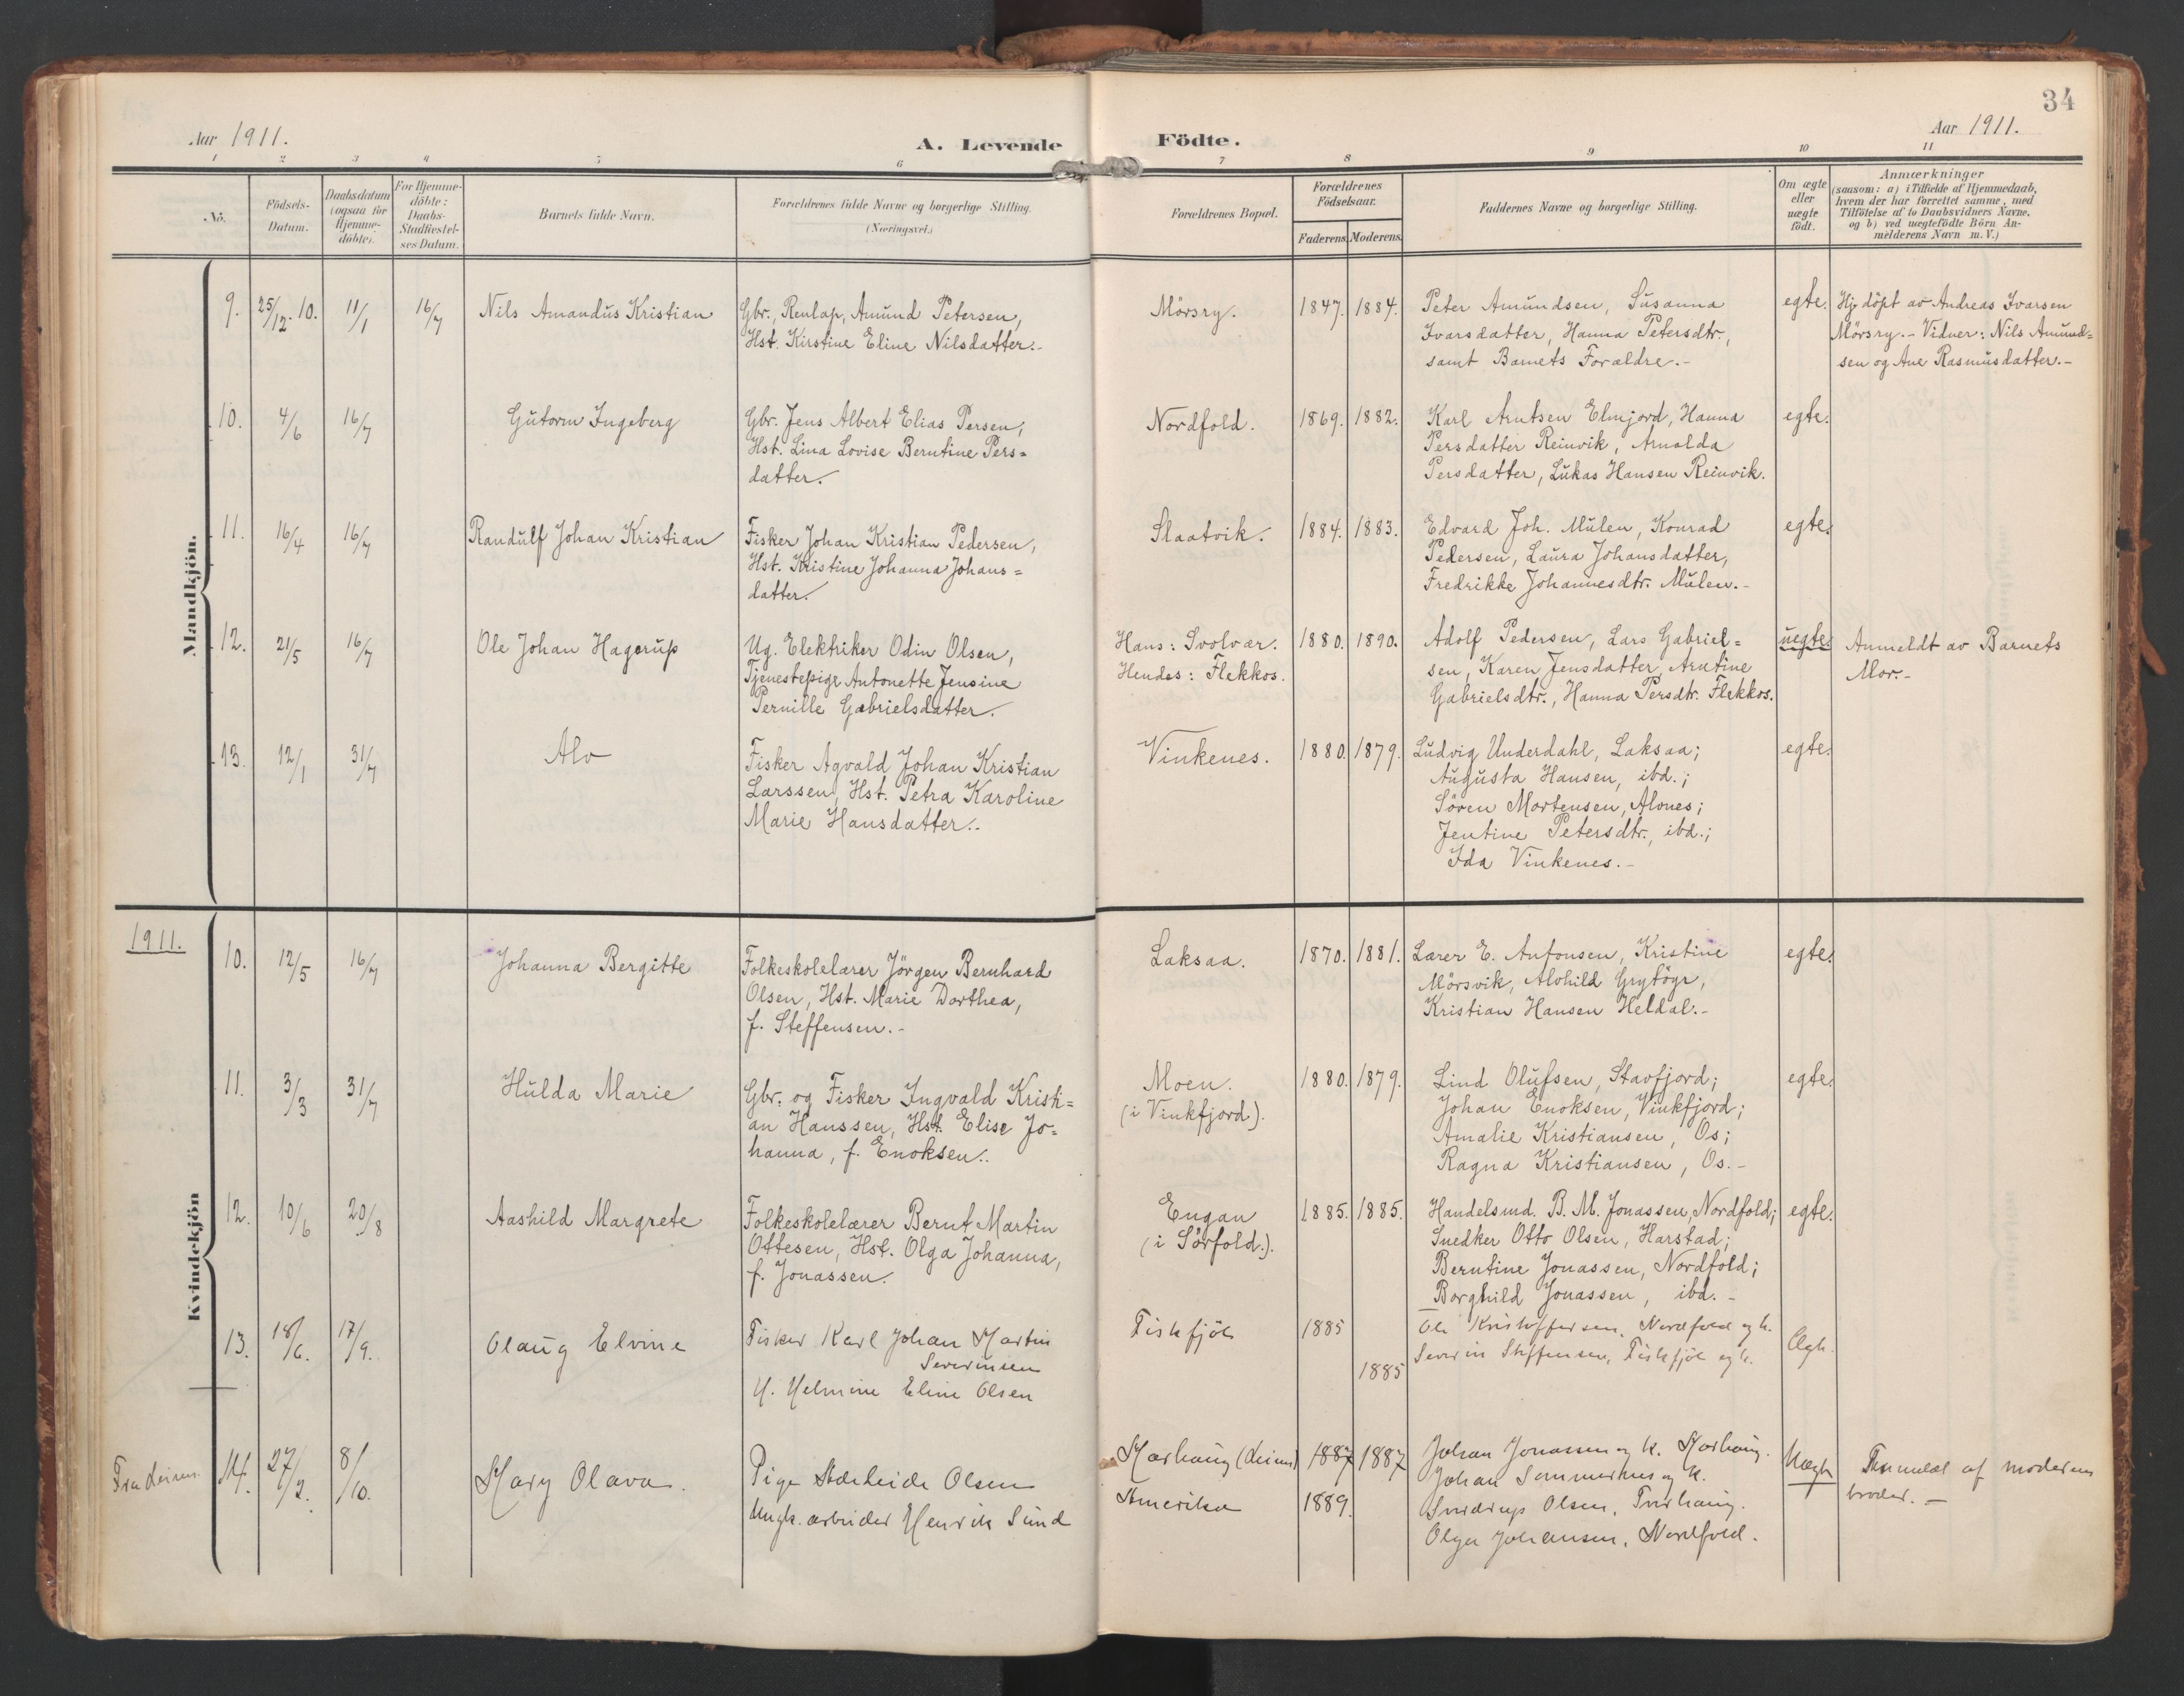 34
Aar 1911.
A. Levende Födte.
Aar 1911.
1 2 3 4 5 6 7 8 9 10 11
No.
Födsels-
Datum.
Daabsdatum
(ogsaa for
Hjemme-
döbte).
For Hjemme-
döbte:
Daabs-
Stadfæstel-
ses Datum.
Barnets fulde Navn.
Forældrenes fulde Navne og borgerlige Stilling.
(Næringsvei.)
Forældrenes Bopæl.
Forældrenes
Födselsaar.
Faderens. Moderens.
Faddernes Navne og borgerlige Stilling.
Om ægte
eller
uægte
födt.
Anmærkninger
(saasom: a) i Tilfælde af Hjemmedaab,
hvem der har forrettet samme, med
Tilföielse af to Daabsvidners Navne,
og b) ved uægtefödte Börn An-
melderens Navn m. V.)
Mandkjön.
9. 25/12. 10. 11/1 16/7
Nils Amandus Kristian
Gbr., Renlap, Amund Petersen,
Hst. Kirstine Eline Nilsdatter.-
Mörsry.
1847. 1884.
Peter Amundsen, Susanna
Ivarsdatter, Hanna Petersdtr.,
samt Barnets Forældre.-
egte.
Hj. döpt av Andreas Ivarsen
Mörsry.- Vidner: Nils Amund=
sen og Ane Rasmusdatter.-
10. 4/6 16/7
Gutorm Ingeberg
Gbr. Jens Albert Elias Persen,
Hst. Lina Lovise Berntine Pers=
datter.
Nordfold.
1869. 1882.
Karl Arntsen Elmjord, Hanna
Persdatter Reinvik, Arnolda
Persdatter, Lukas Hansen Reinvik.
egte.
11. 16/4 16/7
Randulf Johan Kristian
Fisker Johan Kristian Pedersen,
Hst. Kristine Johanna Johans=
datter.
Slaatvik.
1884. 1883.
Edvard Joh. Mulen, Konrad
Pedersen, Laura Johansdatter,
Fredrikke Johannesdtr. Mulen.-
egte.
12. 21/5 16/7
Ole Johan Hagerup
Ug. Elektriker Odin Olsen,
Tjenestepige Antonette Jensine
Pernille Gabrielsdatter.
Hans: Svolvær.
Hendes: Flekkos.
1880. 1890.
Adolf Pedersen, Lars Gabriel=
sen, Karen Jensdatter, Arntine
Gabrielsdtr., Hanna Persdtr. Flekkos.
uegte.
Anmeldt av Barnets
Mor.-
13. 12/1 31/7
Alv
Fisker Agvald Johan Kristian
Larssen, Hst. Petra Karoline
Marie Hansdatter.-
Vinkenes.
1880. 1879.
Ludvig Underdahl, Laksaa;
Augusta Hansen, ibd.;
Sören Mortensen, Alones;
Jentine Petersdtr., ibd.;
Ida Vinkenes.-
egte.
1911.
Kvindekjön
10. 12/5 16/7
Johanna Bergitte
Folkeskolelærer Jörgen Bernhard
Olsen, Hst. Marie Dorthea,
f. Steffensen.-
Laksaa.
1870. 1881.
Lærer E. Antonsen, Kristine
Mörsvik, Alvhild Grytöyr,
Kristian Hansen Heldal.-
egte.
11. 3/3 31/7
Hulda Marie
Gbr. og Fisker Ingvald Kristi=
an Hanssen, Hst. Elise Jo=
hanna, f. Enoksen.-
Moen.
(i Vinkfjord).
1880. 1879.
Lind Olufsen, Stavfjord;
Johan Enoksen, Vinkfjord;
Amalie Kristiansen, Os;
Ragna Kristiansen, Os.-
egte.
12. 10/6 20/8
Aashild Margrete
Folkeskolelærer Bernt Martin
Ottesen, Hst. Olga Johanna,
f. Jonassen.
Engan
(i Sörfold.).
1885. 1885.
Handelsmd. B. M. Jonassen, Nordfold;
Snedker Otto Olsen, Harstad;
Berntine Jonassen, Nordfold;
Borghild Jonassen, ibd.-
egte.
13. 18/6. 17/9.
Olaug Elvine
Fisker Karl Johan Martin
Severinsen
H. Helmine Eline Olsen
Fiskfjöl
1885
1885
Ole Kristoffersen, Nordfold og h.
Severin Steffensen, Fiskfjöl og h.
Ægte.
14. 27/2. 8/10.
Mary Olava.
Pige Adeleide Olsen
Ungk. arbeider Henrik Sund
Amerika
1887 1887
1889.
Johan Jonassen og h.
Johan Sommerhus og h.
Sverdrup Olsen,
Olga Johansen, Nordfold.
Uægte
af moderens
broder.-